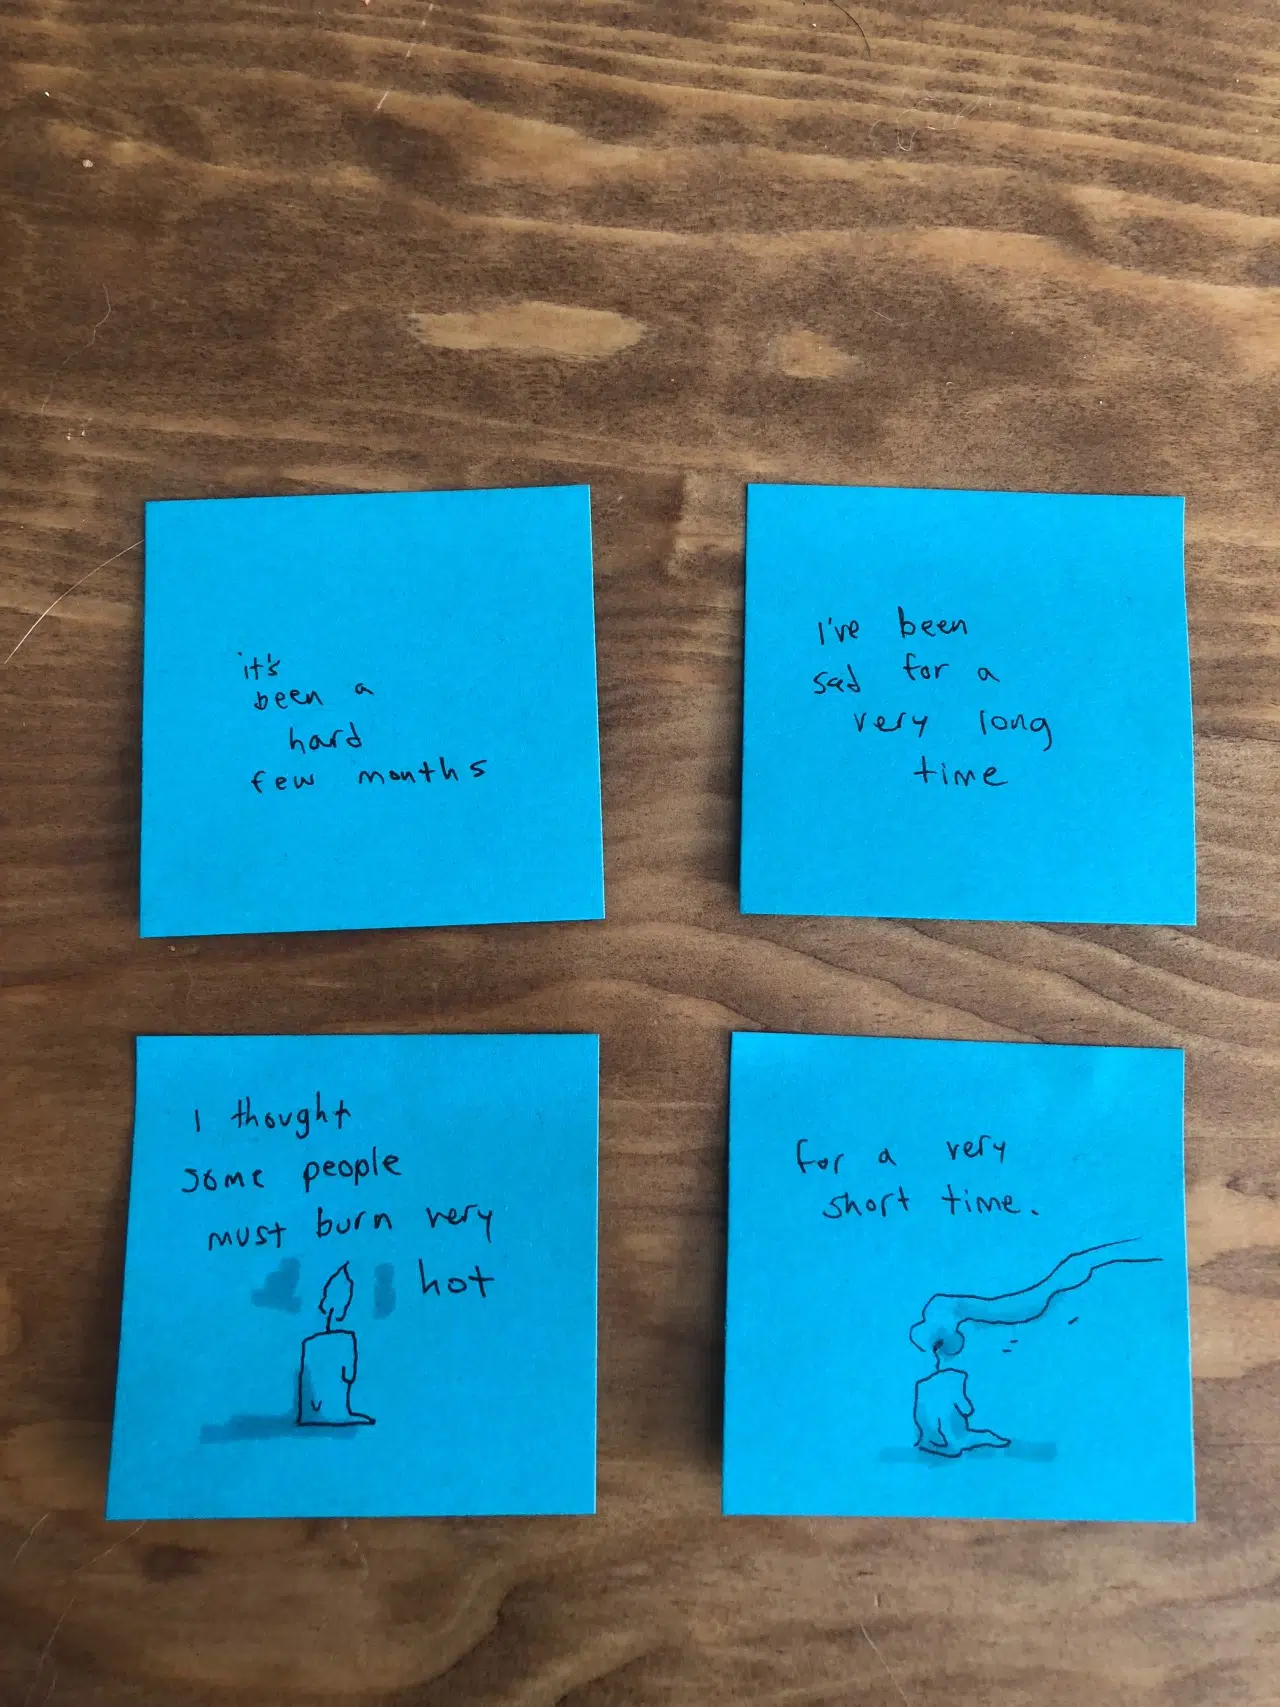 it's
been a
hard
few months
I've been
sad for a
very long
time
I thought
some people
must burn very
hot
for a very
short time.